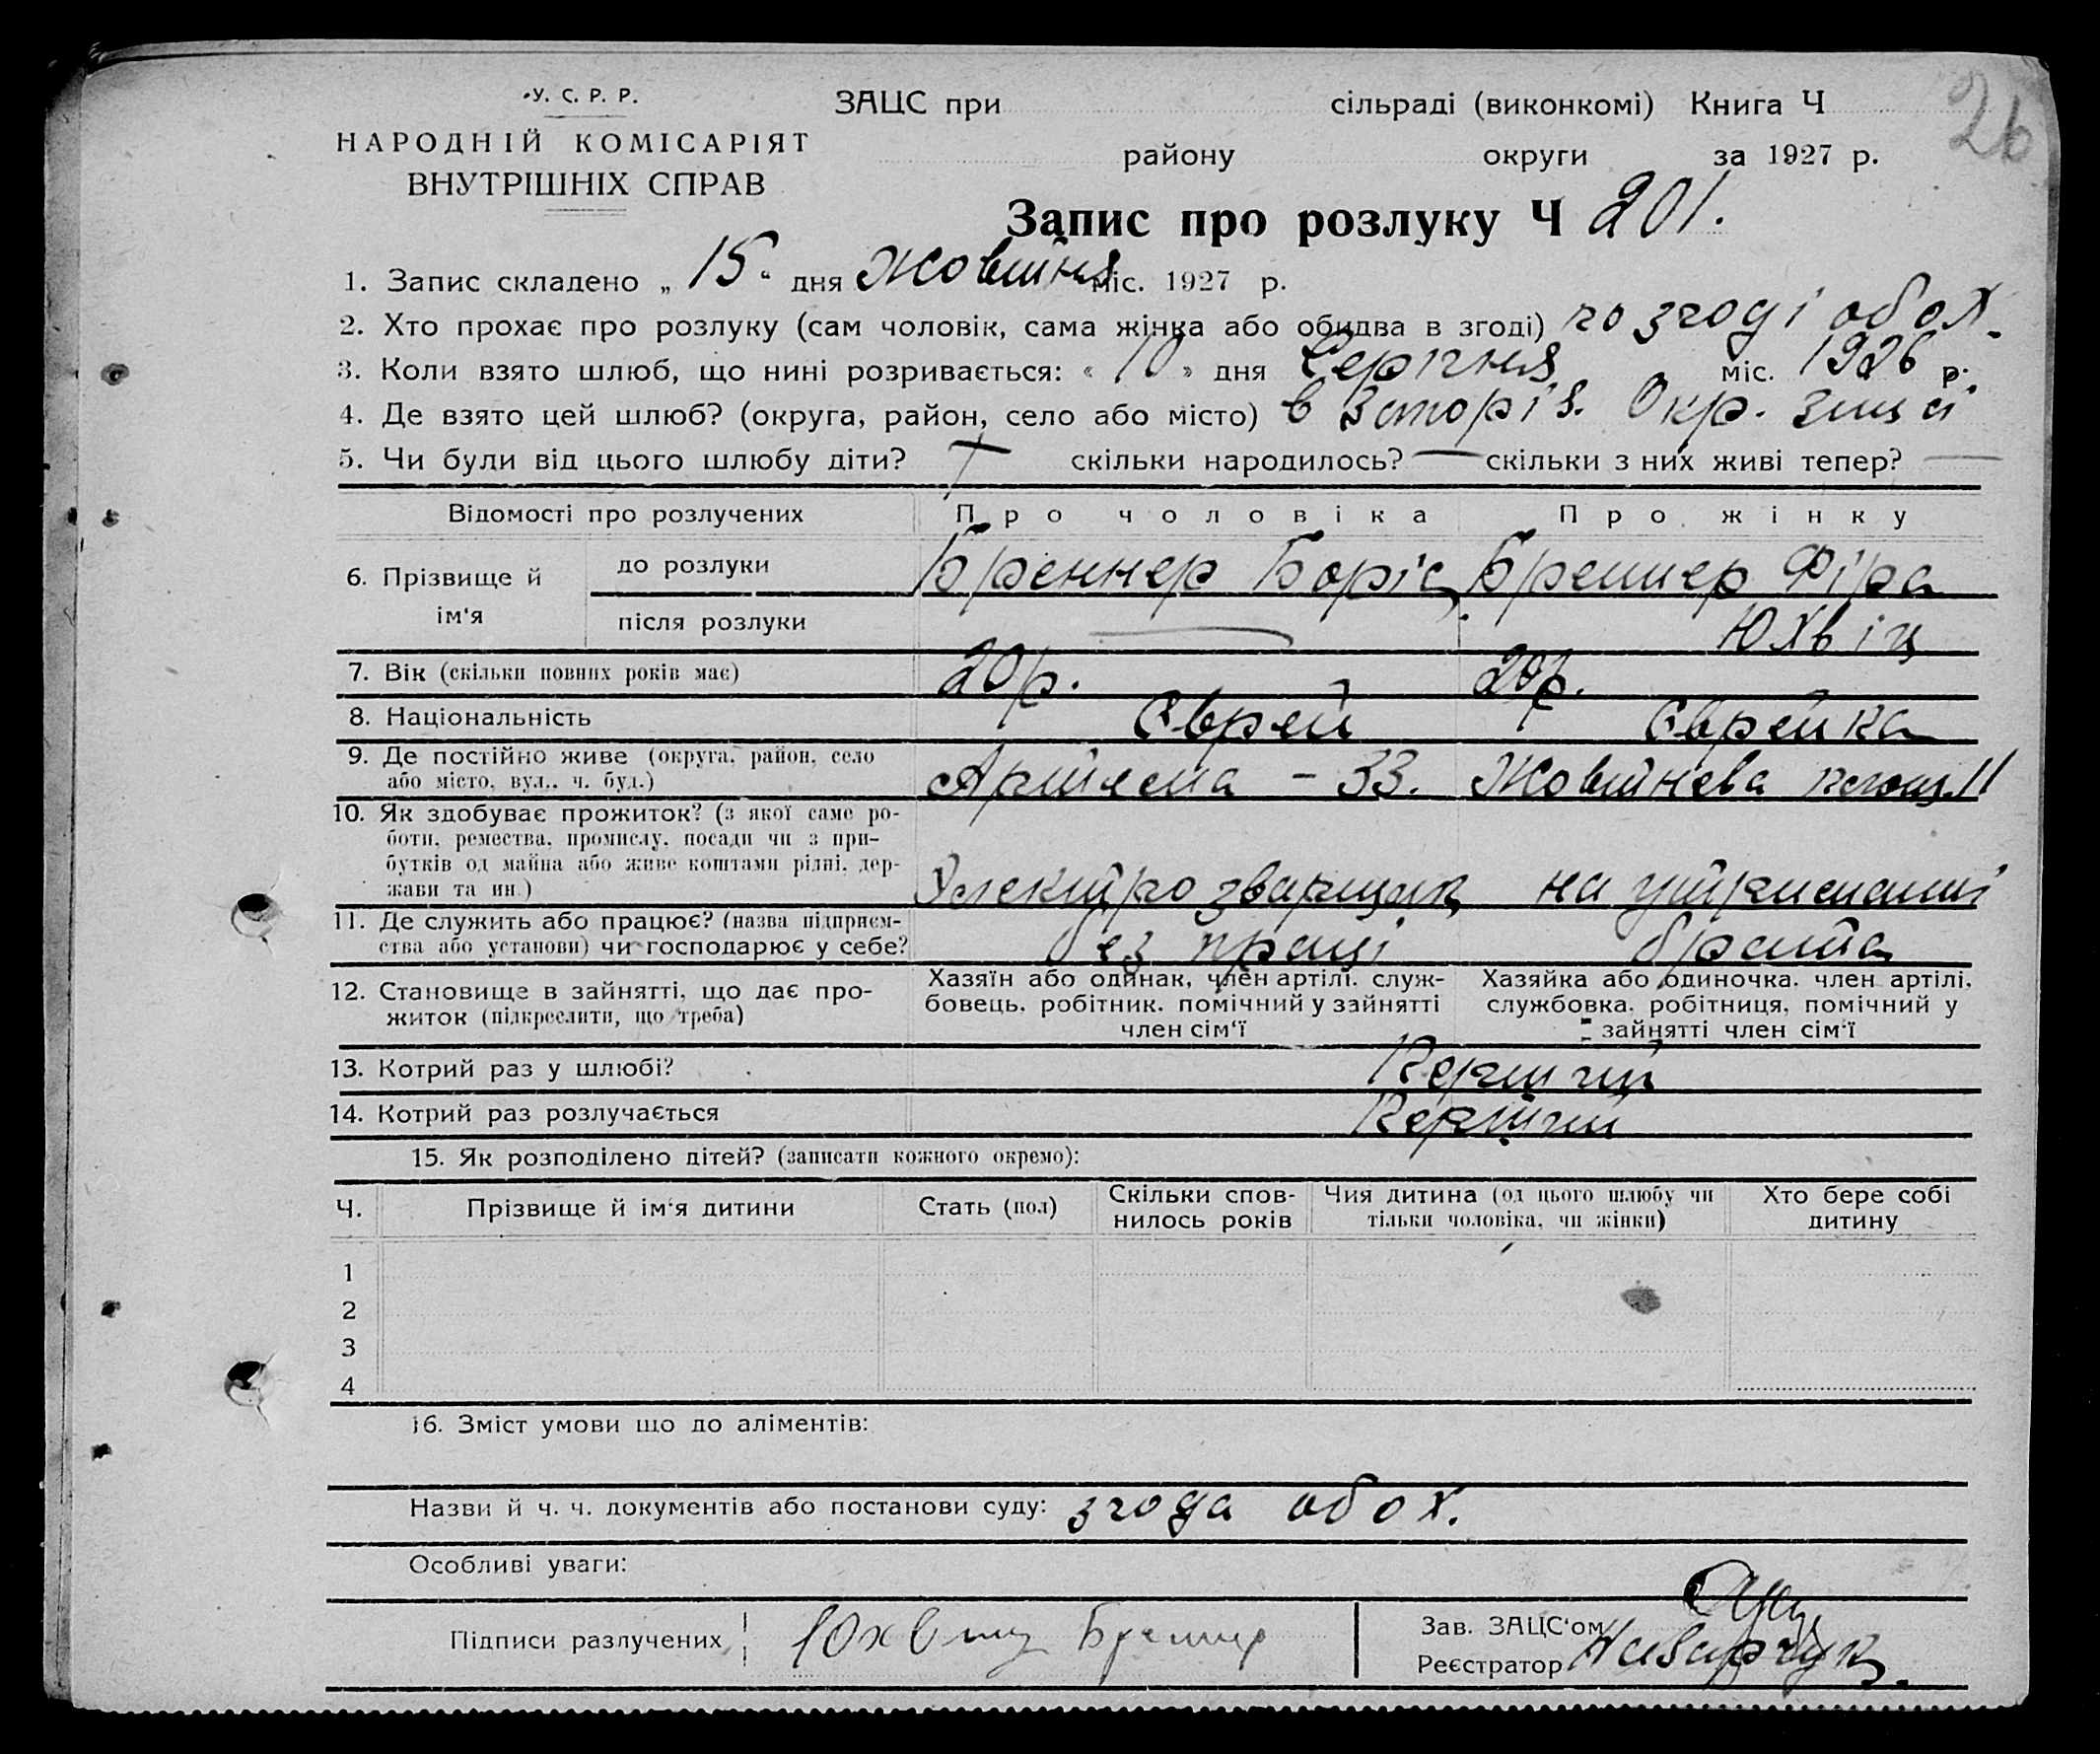 У. С. Р. Р.
НАРОДНІЙ КОМІСАРІЯТ
ВНУТРІШНІХ СПРАВ
ЗАЦС при сільраді (виконкомі) Книга Ч
26
району округи за 1927 р.
Запис про розлуку Ч 201.
1. Запис складено „ 15 “ дня Жовтня міс. 1927 р.
2. Хто прохає про розлуку (сам чоловік, сама жінка або обидва в згоді) по згоді обох.
3. Коли взято шлюб, що нині розривається: « 10 » дня Серпня міс. 1926 р.
4. Де взято цей шлюб? (округа, район, село або місто) в Окр. загсі
5. Чи були від цього шлюбу діти? — скільки народилось? — скільки з них живі тепер? —
Відомості про розлучених Про чоловіка Про жінку
6. Прізвище й ім'я до розлуки Бреннер Боріс Бреннер Фіра
після розлуки — Юхвіц
7. Вік (скільки повних років має) 20 р. 20 р.
8. Національність Єврей Єврейка
9. Де постійно живе (округа, район, село
або місто, вул., ч. буд.) Артема – 33. Жовтнева площ. 11
10. Як здобуває прожиток? (з якої саме ро-
боти, ремества, промислу, посади чи з при-
бутків од майна або живе коштами рідні, дер-
жави та ин.) Електро зварщик на утриманні
11. Де служить або працює? (назва підприєм-
ства або установи) чи господарює у себе? без праці брата
12. Становище в зайнятті, що дає про-
житок (підкреслити, що треба)
Хазяїн або одинак, член артілі, служ-
бовець, робітник, помічний у зайнятті
член сім'ї
Хазяйка або одиночка, член артілі,
службовка, робітниця, помічний у
зайнятті член сім'ї
13. Котрий раз у шлюбі? Перший
14. Котрий раз розлучається Перший
15. Як розподілено дітей? (записати кожного окремо):
Ч. Прізвище й ім'я дитини Стать (пол) Скільки спов-
нилось років Чия дитина (од цього шлюбу чи
тільки чоловіка, чи жінки) Хто бере собі
дитину
1
2
3
4
16. Зміст умови що до аліментів:
Назви й ч. ч. документів або постанови суду: згода обох.
Особливі уваги:
Підписи разлучених Юхвиц Бреннер
Зав. ЗАЦС'ом
Реєстратор